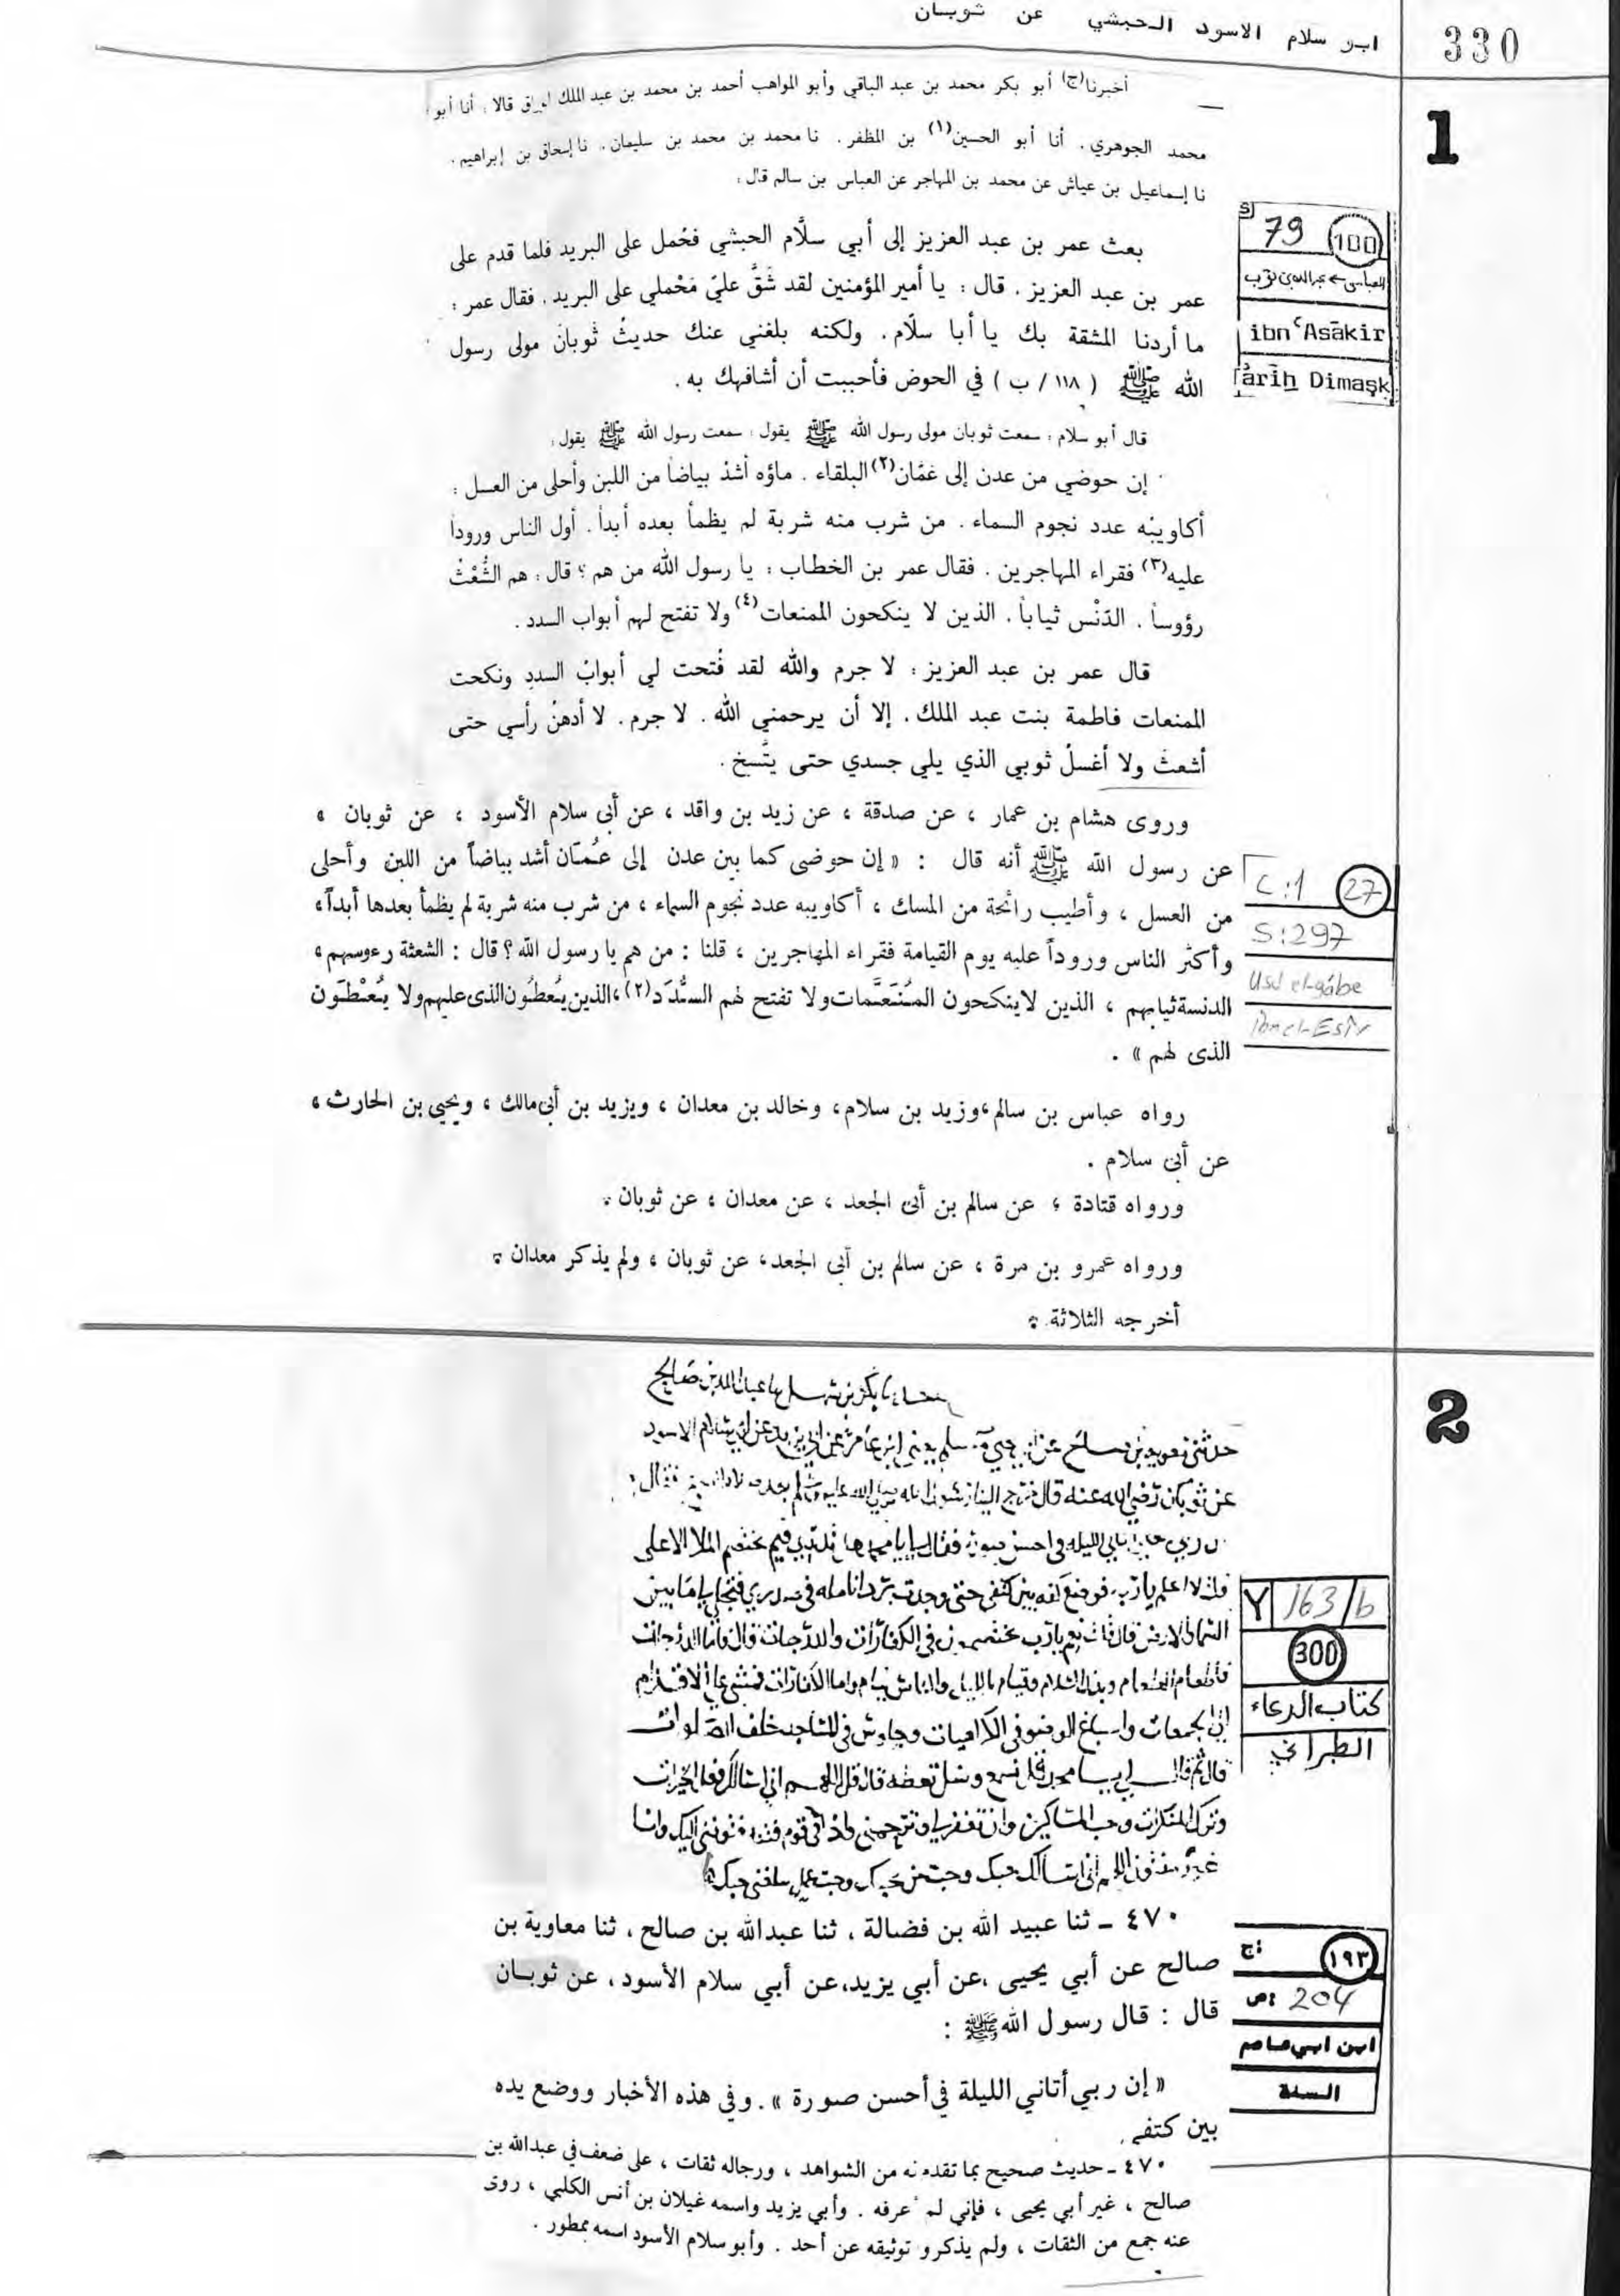 ابو سلام الاسود الحبشي عن ثوبان
330
1
أخبرنا(ح) أبو بكر محمد بن عبد الباقي وأبو المواهب أحمد بن محمد بن عبد الملك قالا : أنا أبو
محمد الجوهري . أنا أبو الحسين(١) بن المظفر . نا محمد بن محمد بن سليمان . نا إسحاق بن إبراهيم .
نا إسماعيل بن عياش عن محمد بن المهاجر عن العباس بن سالم قال :
بعث عمر بن عبد العزيز إلى أبي سلَّام الحبشي فحُمل على البريد فلما قدم على
عمر بن عبد العزيز . قال : يا أمير المؤمنين لقد شَقَّ عليّ مَحْملي على البريد . فقال عمر :
ما أردنا المشقة بك يا أبا سلّام . ولكنه بلغني عنك حديثُ ثوبانَ مولى رسول
الله ﷺ ( ١١٨ / ب ) في الحوض فأحببت أن أشافهك به .
قال أبو سلام : سمعت ثوبان مولى رسول الله ﷺ يقول : سمعت رسول الله ﷺ يقول :
إن حوضي من عدن إلى عَمّان(٢) البلقاء . ماؤه أشدّ بياضاً من اللبن وأحلى من العسل :
أكاويبُه عدد نجوم السماء . من شرب منه شربة لم يظمأ بعده أبداً . أول الناس وروداً
عليه(٣) فقراء المهاجرين . فقال عمر بن الخطاب : يا رسول الله من هم ؟ قال : هم الشُّعْثُ
رؤوساً . الدَنْس ثياباً . الذين لا ينكحون الممنعات(٤) ولا تفتح لهم أبواب السدد .
قال عمر بن عبد العزيز : لا جرم والله لقد فُتحت لي أبوابُ السددِ ونكحت
الممنعات فاطمة بنت عبد الملك . إلا أن يرحمني الله . لا جرم . لا أدهنُ رأسي حتى
أشعثَ ولا أغسلُ ثوبي الذي يلي جسدي حتى يتَّسخ .
S
79 100
ibn ʿAsākir
Tārīḫ Dimaşk
وروى هشام بن عمار ، عن صدقة ، عن زيد بن واقد ، عن أبى سلام الأسود ، عن ثوبان ،
عن رسول الله ﷺ أنه قال : « إن حوضى كما بين عدن إلى عُمّان أشد بياضاً من اللبن وأحلى
من العسل ، وأطيب رائحة من المسك ، أكاويبه عدد نجوم السماء ، من شرب منه شربة لم يظمأ بعدها أبداً ،
وأكثر الناس وروداً عليه يوم القيامة فقراء المهاجرين ، قلنا : من هم يا رسول الله ؟ قال : الشعثة رءوسهم ،
الدنسة ثيابهم ، الذين لا ينكحون المُتَنَعَّمات ولا تفتح لهم السُّدَد(٢) ، الذين يُعطُون الذى عليهم ولا يُعْطَون
الذى لهم » .
رواه عباس بن سالم ، وزيد بن سلام ، وخالد بن معدان ، ويزيد بن أبى مالك ، ويحيى بن الحارث ،
عن أبى سلام .
ورواه قتادة ؛ عن سالم بن أبى الجعد ، عن معدان ، عن ثوبان .
ورواه عمرو بن مرة ، عن سالم بن أبى الجعد ، عن ثوبان ، ولم يذكر معدان .
أخرجه الثلاثة .
C:1 27
S:297
Usd el-gâbe
İbn el-Esîr
2
عن ثوبان رضي الله عنه قال خرج الينا رسول الله صلى الله عليه وسلم بعد صلاة فقال
ربي اتاني الليلة في احسن صورة فقال لي يا محمد فيم يختصم الملا الاعلى
قلت لا اعلم يا رب فوضع كفه بين كتفي حتى وجدت برد انامله في صدري فتجلى لي ما بين
السماء والارض قال قلت نعم يا رب يختصمون في الكفارات والدرجات قال فاما الدرجات
فاطعام الطعام وبذل السلام وقيام بالليل والناس نيام واما الكفارات فمشي على الاقدام
الى الجمعات واسباغ الوضوء في الكراهيات وجلوس في المساجد خلف الصلوات
قال ثم قال لي يا محمد قل تسمع وسل تعطه قال قل اللهم اني اسالك فعل الخيرات
وترك المنكرات وحب المساكين وان تغفر لي وترحمني واذا اردت في قوم فتنة فتوفني اليك وانا
غير مفتون اللهم اني اسالك حبك وحب من يحبك وحب عمل يبلغني حبك
Y 163/b
300
كتاب الدعاء
الطبراني
٤٧٠ - ثنا عبيد الله بن فضالة ، ثنا عبدالله بن صالح ، ثنا معاوية بن
صالح عن أبي يحيى ، عن أبي يزيد، عن أبي سلام الأسود ، عن ثوبان
قال : قال رسول الله ﷺ :
« إن ربي أتاني الليلة في أحسن صورة » . وفي هذه الأخبار ووضع يده
بين كتفي
ج: ١٩٣
ص: 204
ابن ابي عاصم
السنة
٤٧٠ - حديث صحيح بما تقدم له من الشواهد ، ورجاله ثقات ، على ضعف في عبدالله بن
صالح ، غير أبي يحيى ، فإني لم أعرفه . وأبي يزيد واسمه غيلان بن أنس الكلبي ، روى
عنه جمع من الثقات ، ولم يذكرو توثيقه عن أحد . وأبو سلام الأسود اسمه ممطور .